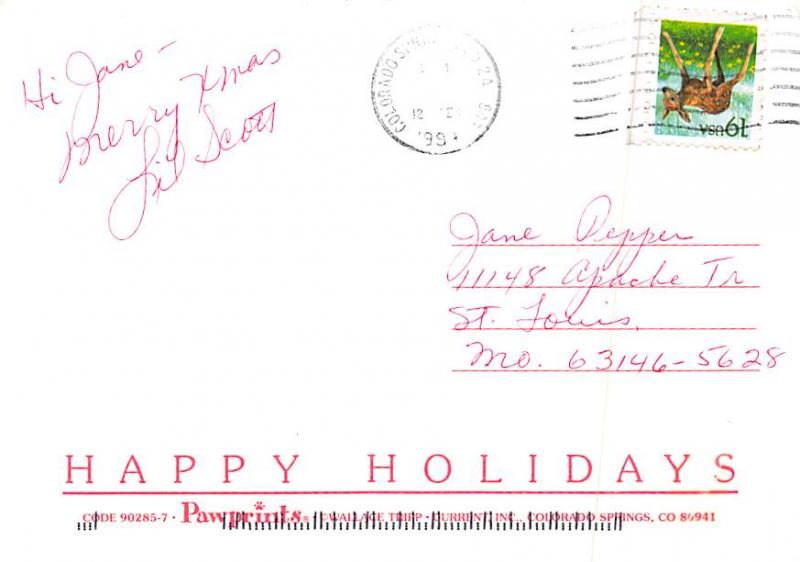 Hi Jane -
Merry Xmas
Lil Scott
COLORADO SPRINGS
12
'99
19USA
Jane Pepper
11148 Apache Tr
St. Louis,
Mo. 63146-5628
HAPPY HOLIDAYS
CODE 90285-7 · Pawprints® ©WALLACE TRIPP · CURRENT, INC., COLORADO SPRINGS, CO 80941